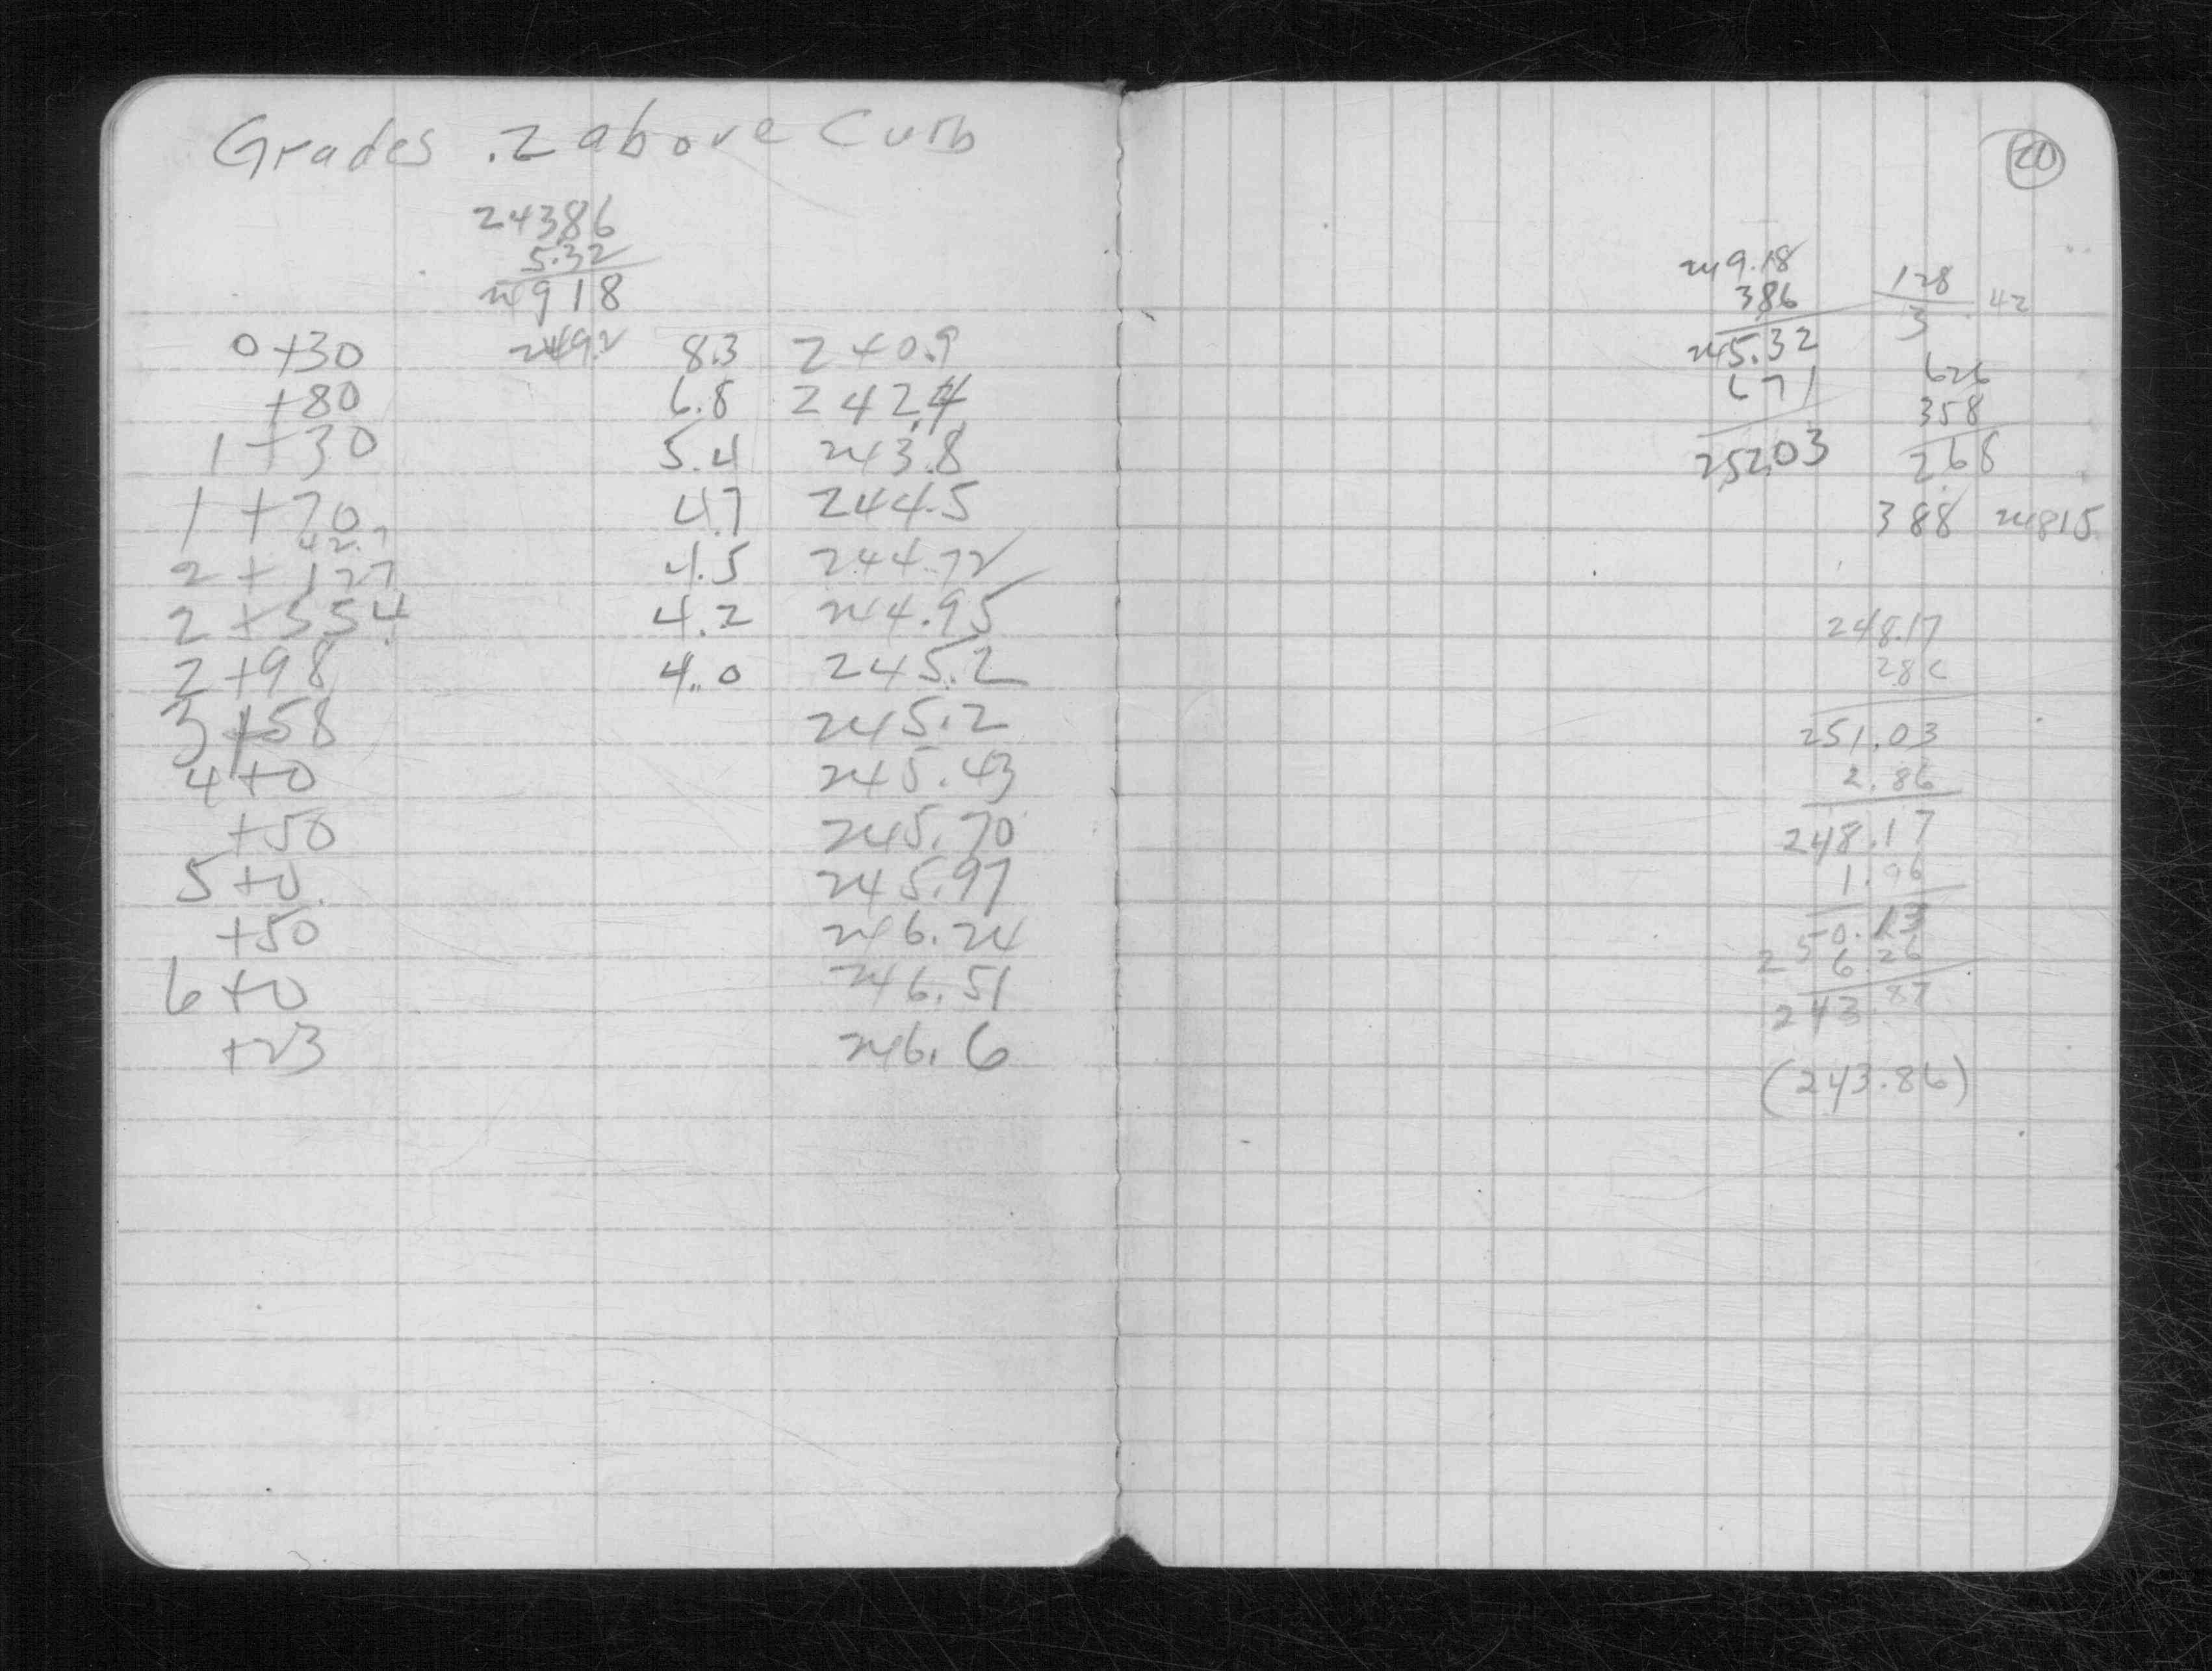 Grades .2 above Curb
24386
5.32
24918
0+30 249.2 8.3 240.9
+80 6.8 242.4
1+30 5.4 243.8
1+70 4.7 244.5
42.7
2+127 4.5 244.72
2+554 4.2 244.95
2+98 4.0 245.2
3+58 245.2
4+0 245.43
+50 245.70
5+0 245.97
+50 246.24
6+0 246.51
+23 246.6
20
249.18
386
245.32
671
252.03
128
3 .42
626
358
2.68
388 24815
248.17
286
251.03
2.86
248.17
1.96
250.13
6.26
243.87
(243.86)